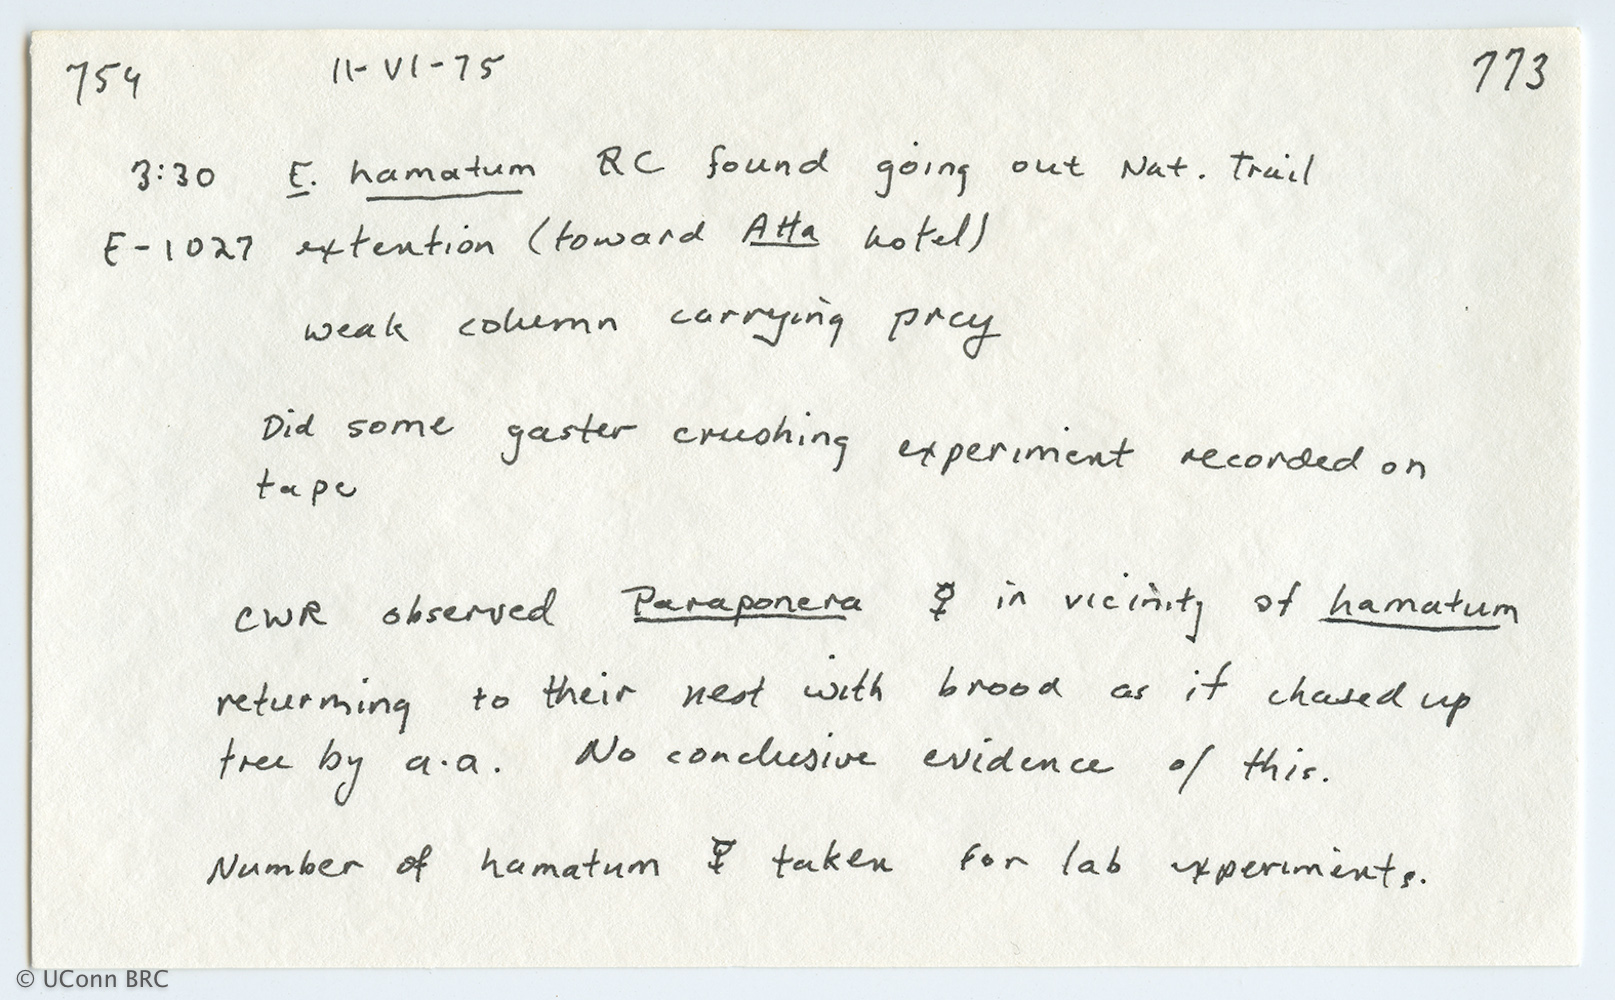 754 11-VI-75 773
3:30 E. hamatum RC found going out Nat. Trail
E-1027 extention (toward Atta hotel)
weak column carrying prey
Did some gaster crushing experiment recorded on
tape
CWR observed Paraponera ☿ in vicinity of hamatum
returming to their nest with brood as if chased up
tree by a.a. No conclusive evidence of this.
Number of hamatum ☿ taken for lab experiments.
© UConn BRC